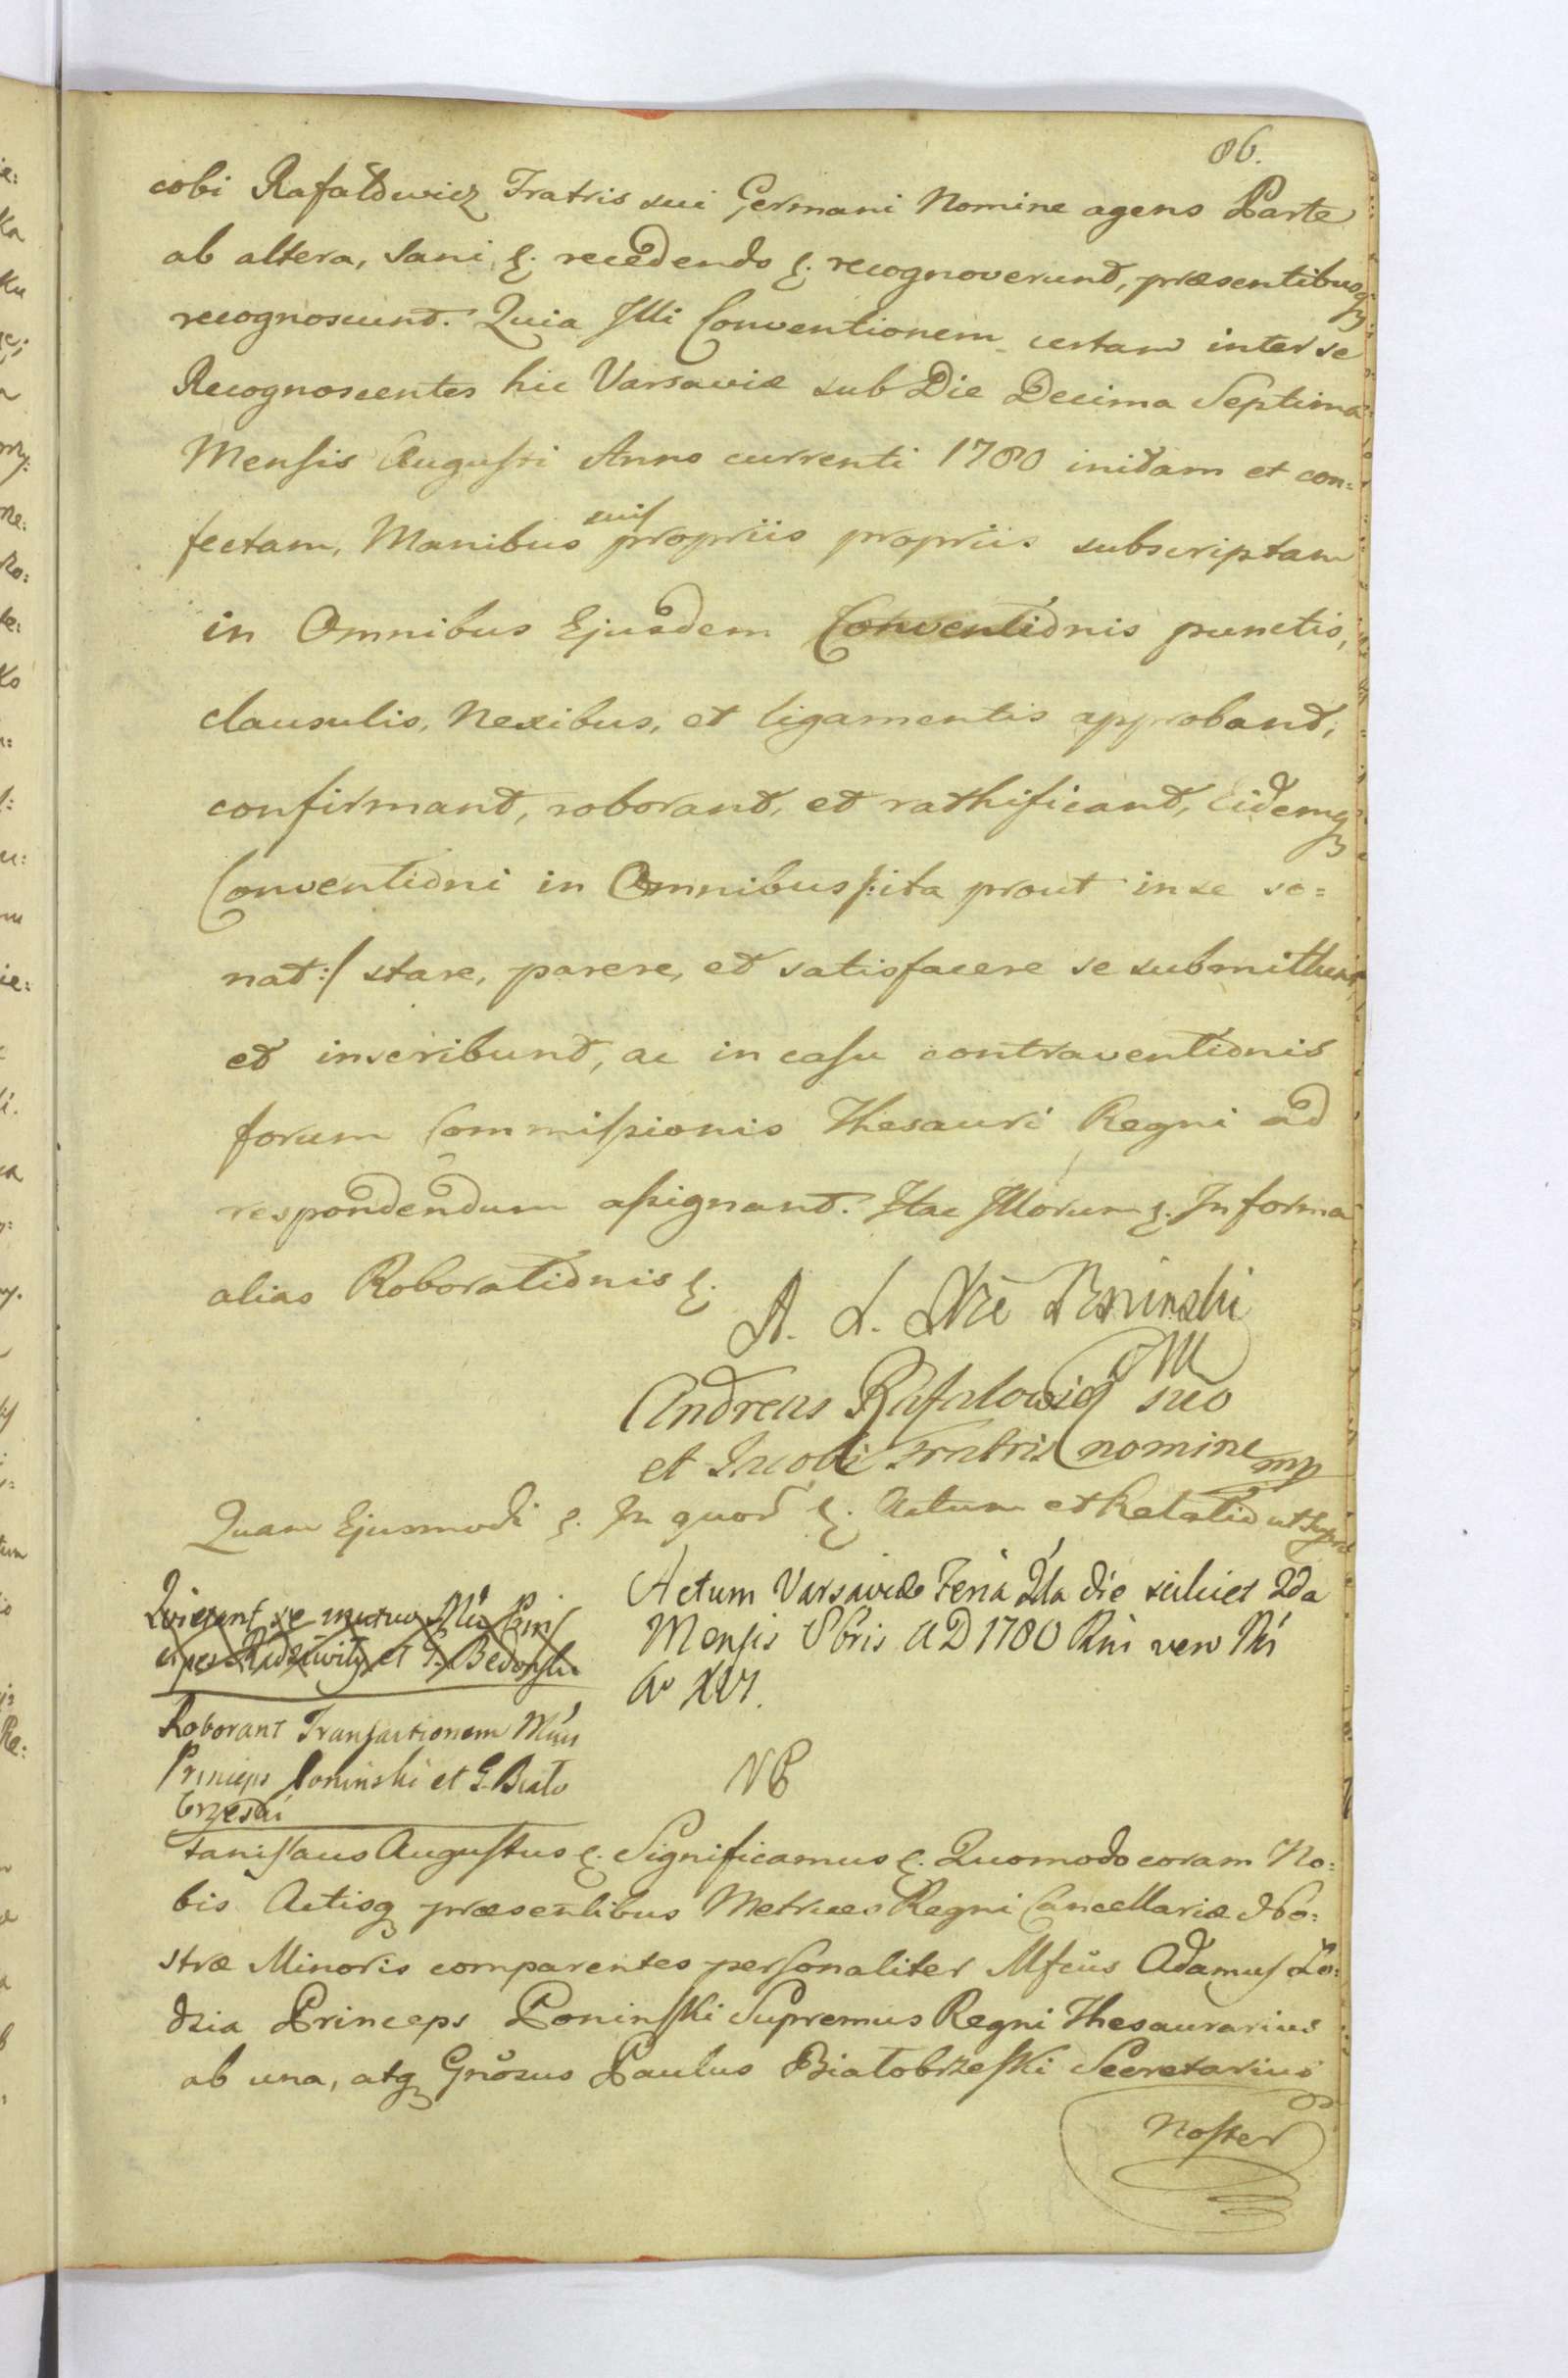 86.
cobi Rafałowicz Fratris sui Germani Nomine agens Parte
ab altera, sani &. recedendo &. recognoverunt, præsentibusq
recognoscunt. Quia Illi Conventionem certam inter se
Recognoscentes hic Varsaviæ sub Die Decima Septima
Mensis Augusti Anno currenti 1780 initam et con=
fectam, Manibus suis propriis propriis subscriptam
in Omnibus Ejusdem Conventionis punctis,
clausulis, Nexibus, et ligamentis approbant,
confirmant, roborant, et rathificant, Eidemq
Conventioni in Omnibus /:ita prout in se so=
nat:/ stare, parere, et satisfacere se submittunt,
et inscribunt, ac in casu contraventionis
forum Commissionis Thesauri Regni ad
respondendum assignant. Hac Illorum &. In forma
alias Roborationis &.
A. L. Xże Poninski
Andreas Rafalowicz suo
et Jacobi Fratris nomine mp
Quam Ejusmodi &. In quor &. Actum et Relatio ut supra
Quietant se mutuo
et G.
Actum Varsaviæ Feria 2da die scilicet 2da
Mensis 8bris AD 1780 Rni vero Nri
Ao XVI.
Roborant Transactionem
Princeps Poninski et G. Biało
brzeski
NB
Stanislaus Augustus &. Significamus &. Quomodo coram No=
bis Actisq præsentibus Metrices Regni Cancellariæ No=
stræ Minoris comparentes personaliter Mfcus Adamus Lo=
dzia Princeps Poninski Supremus Regni Thesaurarius
ab una, atq Gnosus Paulus Białobrzeski Secretarius
Noster